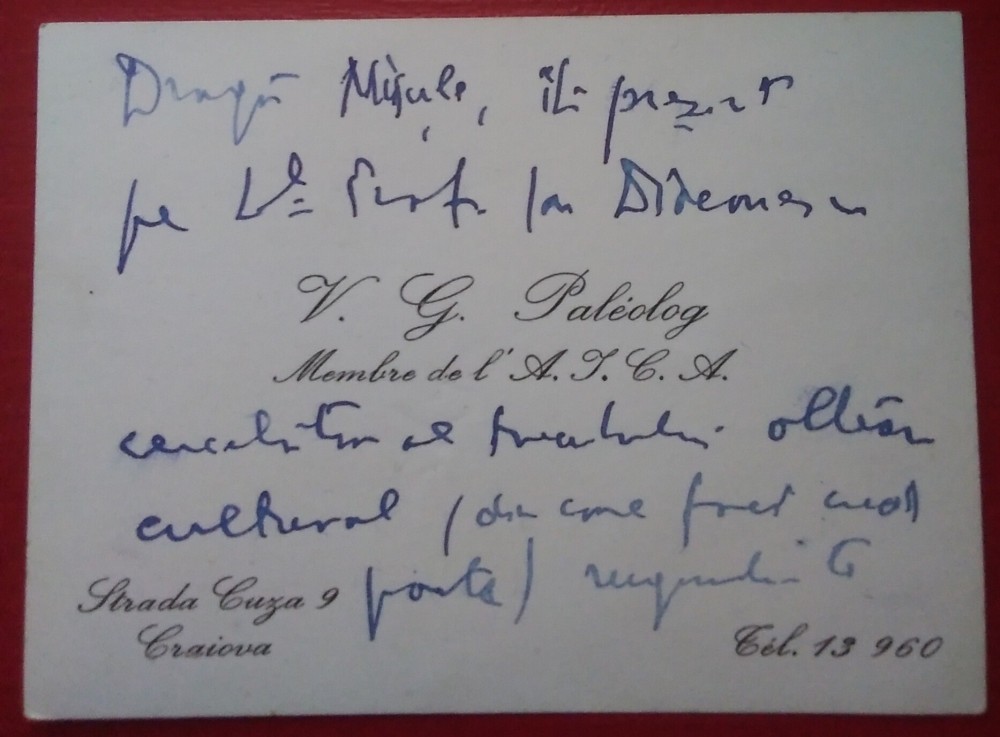 Dragă Mișule, îți prezint
pe Dl Prof. Ion Dideanescu
V. G. Paléolog
Membre de l'A.I.C.A.
cercetător al trecutului oltean
cultural (din care faci
parte)
Strada Cuza 9
Craiova
Tél. 13 960